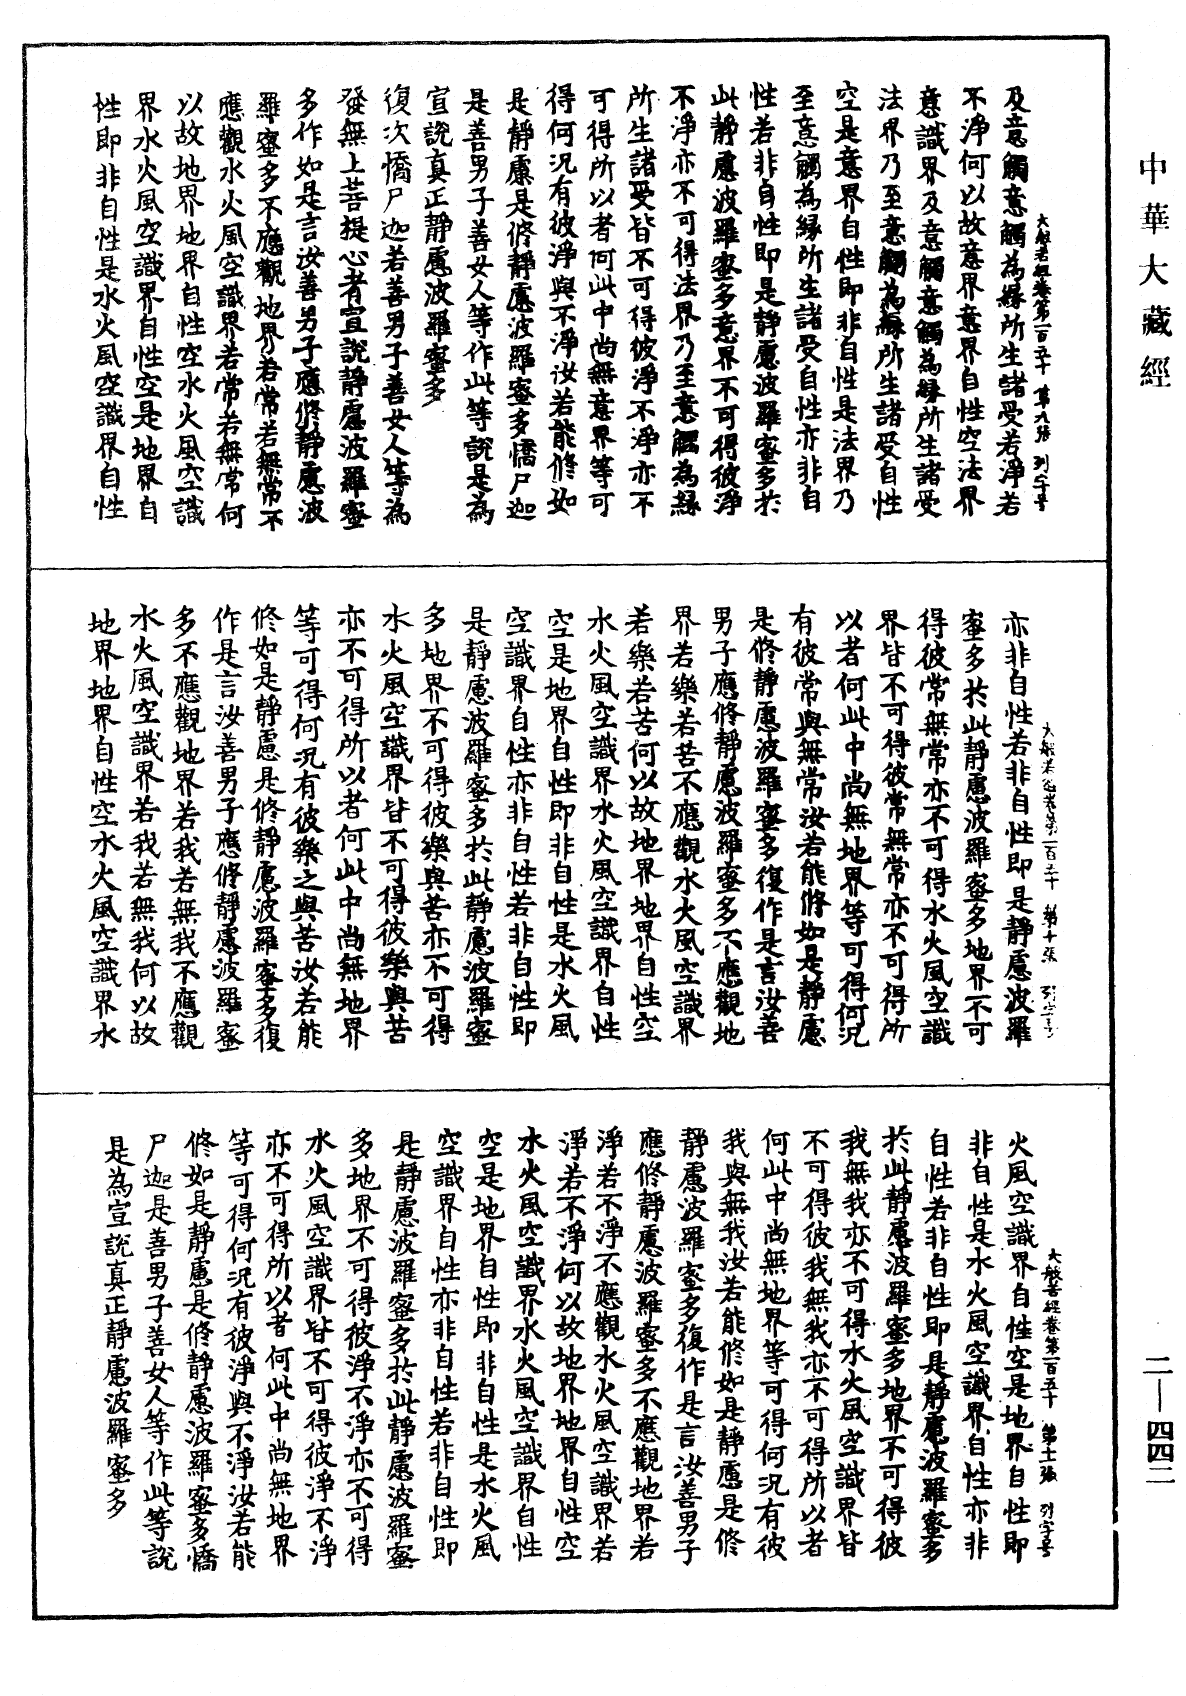 中華大藏經
二—四四二
大般若經卷第一百五十 第九張 列字号
及意觸意觸為緣所生諸受若淨若
不淨何以故意界意界自性空法界
意識界及意觸意觸為緣所生諸受
法界乃至意觸為緣所生諸受自性
空是意界自性即非自性是法界乃
至意觸為緣所生諸受自性亦非自
性若非自性即是靜慮波羅蜜多於
此靜慮波羅蜜多意界不可得彼淨
不淨亦不可得法界乃至意觸為緣
所生諸受皆不可得彼淨不淨亦不
可得所以者何此中尚無意界等可
得何況有彼淨與不淨汝若能修如
是靜慮是修靜慮波羅蜜多憍尸迦
是善男子善女人等作此等說是為
宣說真正靜慮波羅蜜多
復次憍尸迦若善男子善女人等為
發無上菩提心者宣說靜慮波羅蜜
多作如是言汝善男子應修靜慮波
羅蜜多不應觀地界若常若無常不
應觀水火風空識界若常若無常何
以故地界地界自性空水火風空識
界水火風空識界自性空是地界自
性即非自性是水火風空識界自性
大般若經卷第一百五十 第十張 列字号
亦非自性若非自性即是靜慮波羅
蜜多於此靜慮波羅蜜多地界不可
得彼常無常亦不可得水火風空識
界皆不可得彼常無常亦不可得所
以者何此中尚無地界等可得何況
有彼常與無常汝若能修如是靜慮
是修靜慮波羅蜜多復作是言汝善
男子應修靜慮波羅蜜多不應觀地
界若樂若苦不應觀水火風空識界
若樂若苦何以故地界地界自性空
水火風空識界水火風空識界自性
空是地界自性即非自性是水火風
空識界自性亦非自性若非自性即
是靜慮波羅蜜多於此靜慮波羅蜜
多地界不可得彼樂與苦亦不可得
水火風空識界皆不可得彼樂與苦
亦不可得所以者何此中尚無地界
等可得何況有彼樂之與苦汝若能
修如是靜慮是修靜慮波羅蜜多復
作是言汝善男子應修靜慮波羅蜜
多不應觀地界若我若無我不應觀
水火風空識界若我若無我何以故
地界地界自性空水火風空識界水
大般若經卷第一百五十 第十一張 列字号
火風空識界自性空是地界自性即
非自性是水火風空識界自性亦非
自性若非自性即是靜慮波羅蜜多
於此靜慮波羅蜜多地界不可得彼
我無我亦不可得水火風空識界皆
不可得彼我無我亦不可得所以者
何此中尚無地界等可得何況有彼
我與無我汝若能修如是靜慮是修
靜慮波羅蜜多復作是言汝善男子
應修靜慮波羅蜜多不應觀地界若
淨若不淨不應觀水火風空識界若
淨若不淨何以故地界地界自性空
水火風空識界水火風空識界自性
空是地界自性即非自性是水火風
空識界自性亦非自性若非自性即
是靜慮波羅蜜多於此靜慮波羅蜜
多地界不可得彼淨不淨亦不可得
水火風空識界皆不可得彼淨不淨
亦不可得所以者何此中尚無地界
等可得何況有彼淨與不淨汝若能
修如是靜慮是修靜慮波羅蜜多憍
尸迦是善男子善女人等作此等說
是為宣說真正靜慮波羅蜜多